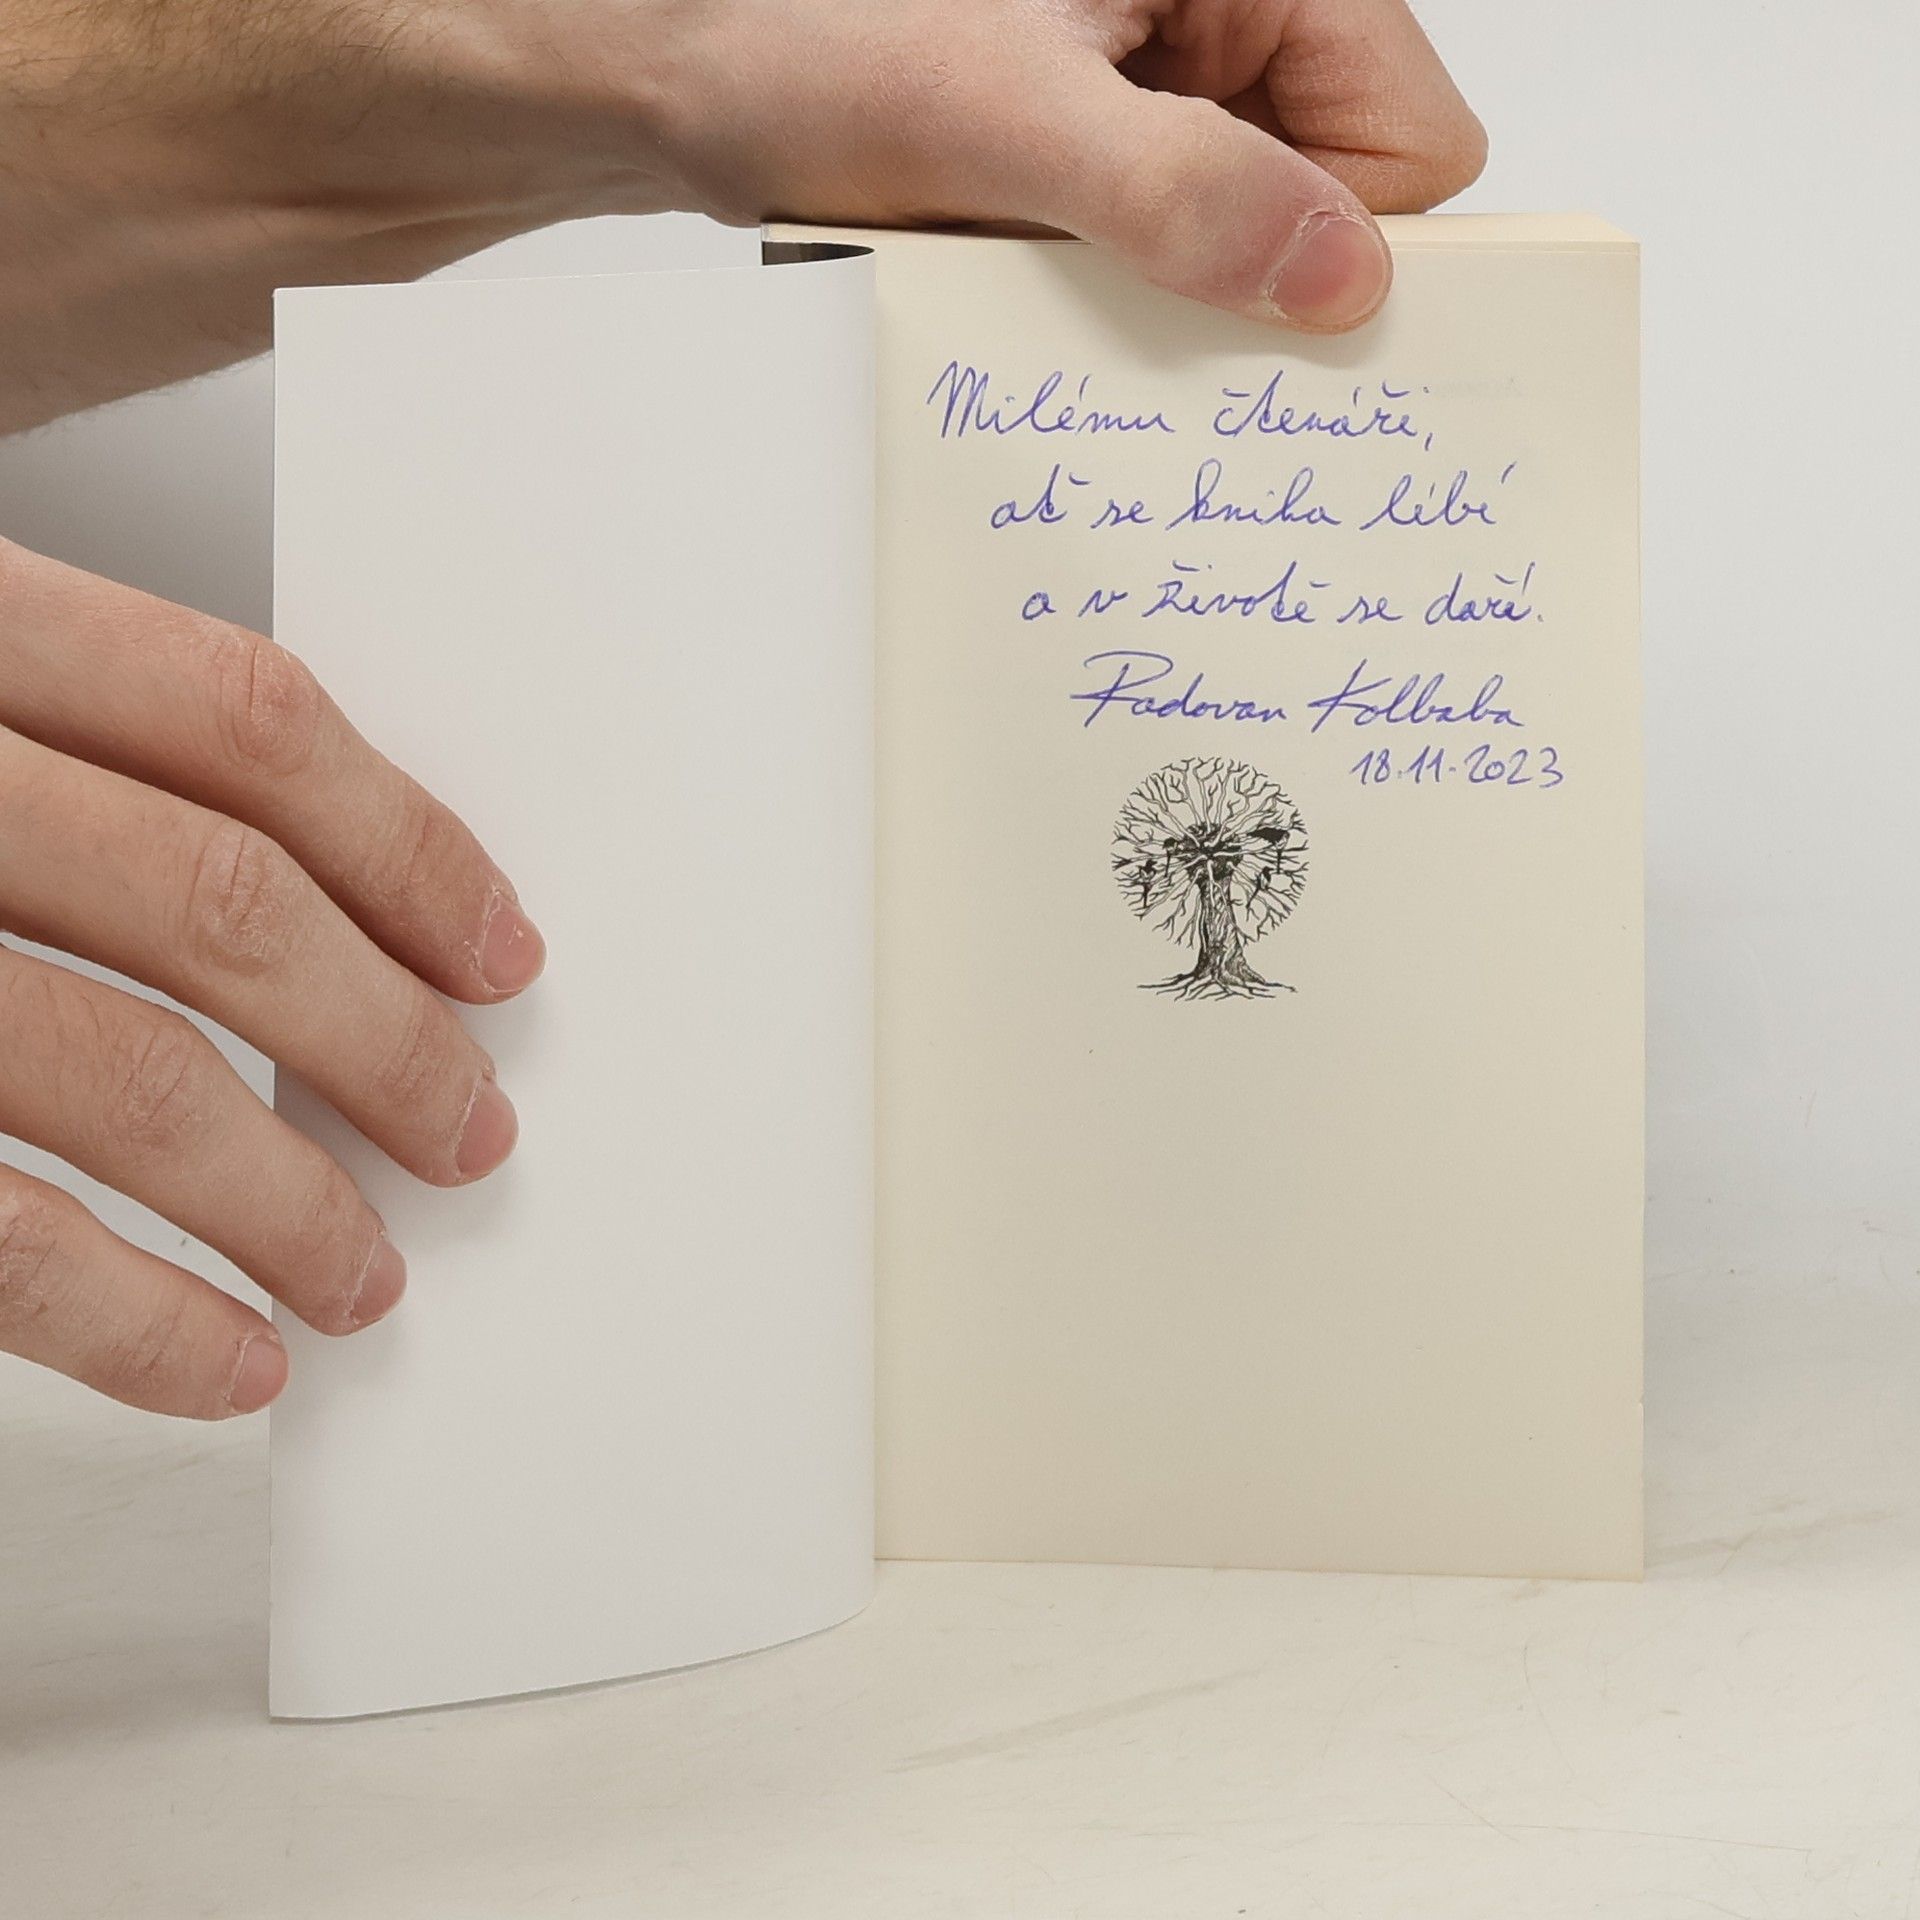 Milému čtenáři,
ať se kniha líbí
a v životě se daří.
Radovan Kolbaba
18.11.2023